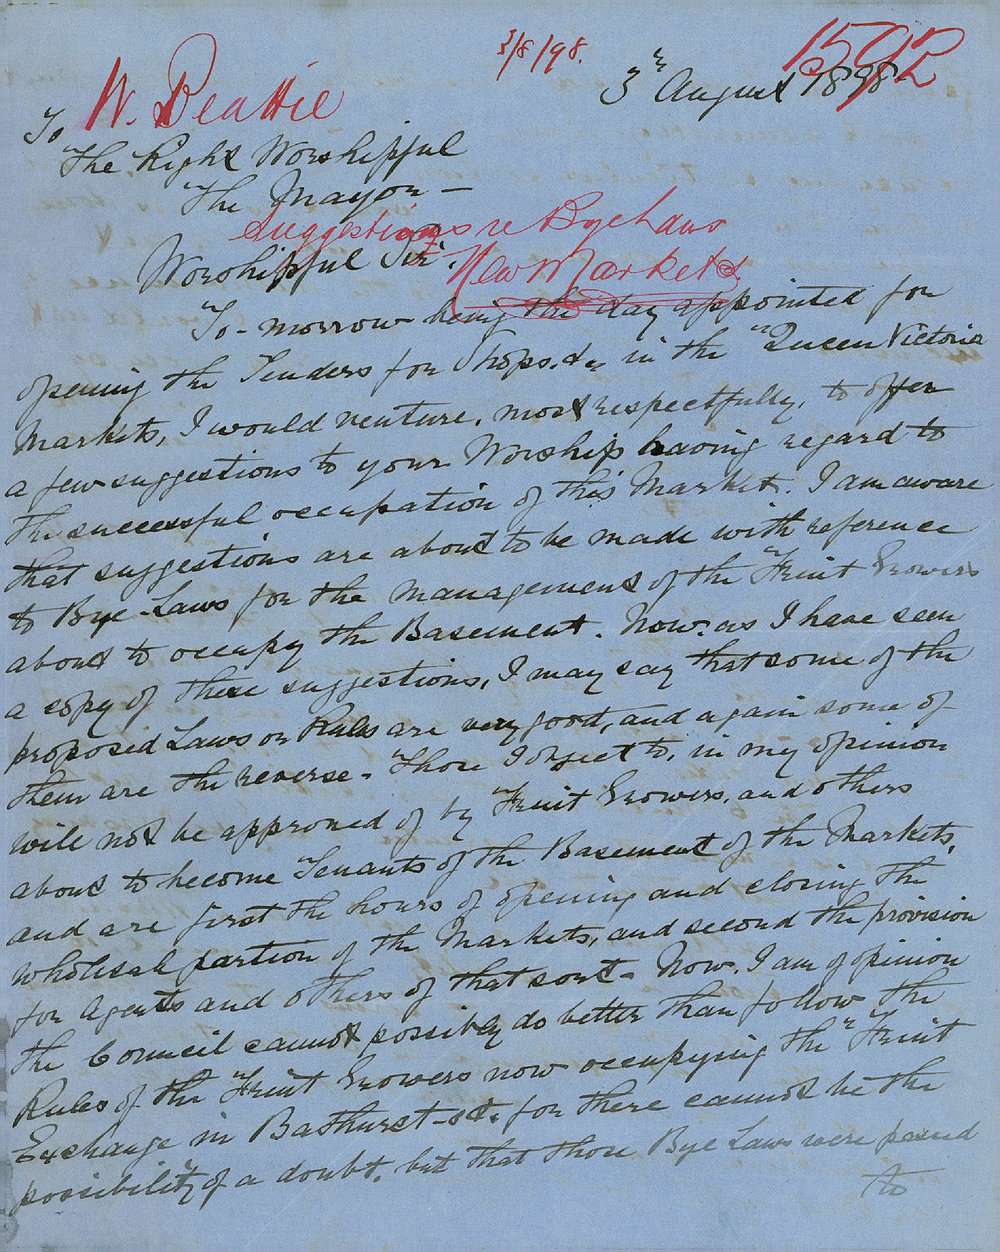 3/8/98.
1592
3rd August 1898.
W. Beattie
To
The Right Worshipful
The Mayor —
Suggestions re Bye Laws
New Markets.
Worshipful Sir.
To-morrow being the day appointed for
opening the Tenders for Shops. &c in the "Queen Victoria
Markets, I would venture, most respectfully, to offer
a few suggestions to your Worship having regard to
the successful occupation of this Market. I am aware
that suggestions are about to be made with reference
to Bye-Laws for the management of the Fruit Growers
about to occupy the Basement. Now, as I have seen
a copy of these suggestions, I may say that some of the
proposed Laws or Rules are very good, and again some of
them are the reverse - Those I object to, in my opinion
will not be approved of by Fruit Growers, and others
about to become Tenants of the Basement of the Markets,
and are first the hours of opening and closing the
wholesal portion of the Markets, and second the provision
for Agents and others of that sort - Now, I am of opinion
the Council cannot possibly do better than follow the
Rules of the Fruit Growers now occupying the "Fruit
Exchange in Bathurst-st. for there cannot be the
possibility of a doubt, but that those Bye Laws were passed
to